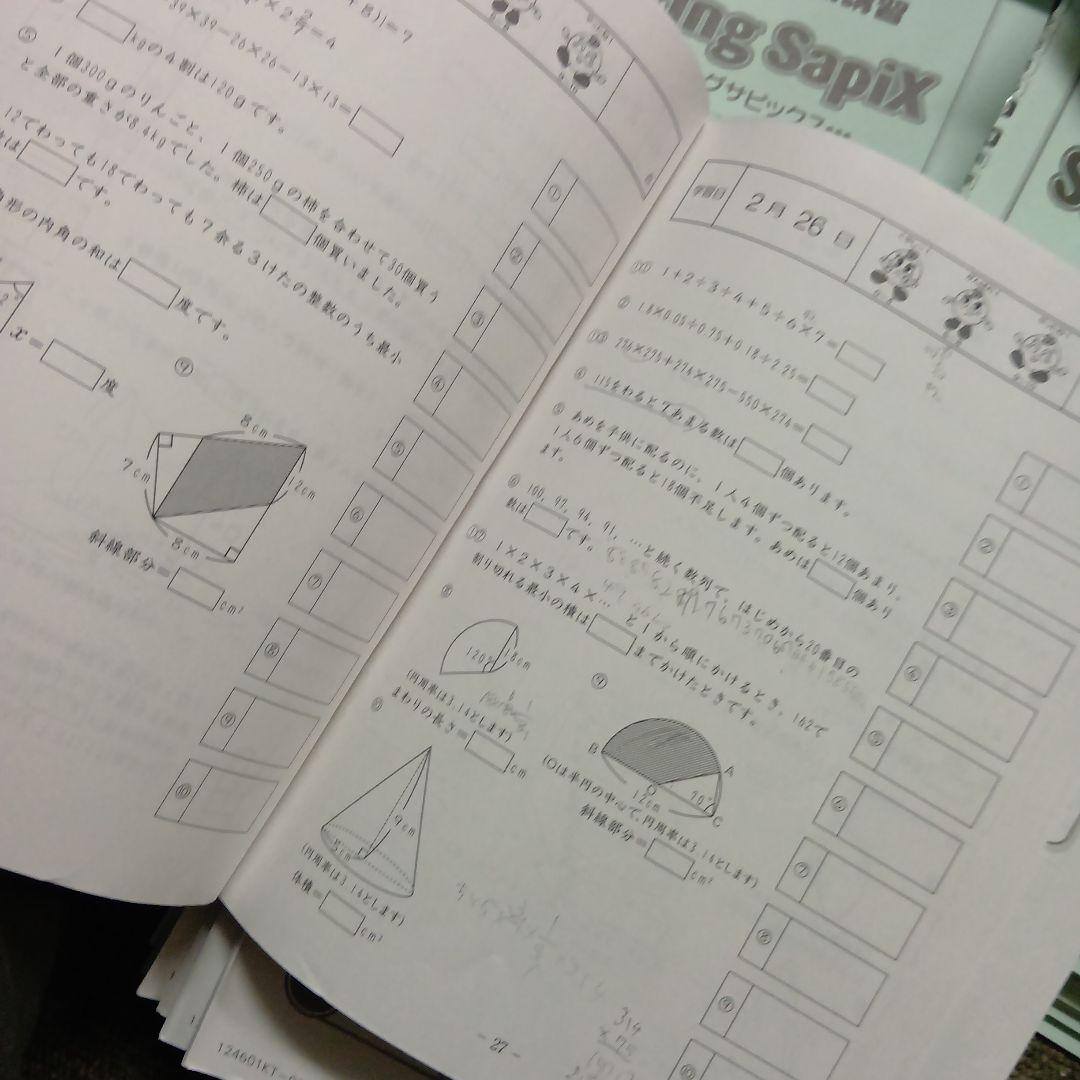 +8)}=7
×2 2/7=4
39×39-26×26-13×13=
kgの4割は120gです。
⑤ 1個300gのりんごと、1個250gの柿を合わせて30個買う
と全部の重さが8.4kgでした。柿は 個買いました。
12でわっても18でわっても7余る3けたの整数のうち最小
は です。
角形の内角の和は 度です。
x= 度
⑨
8cm
7cm
12cm
8cm
斜線部分= cm²
①
②
③
④
⑤
⑥
⑦
⑧
⑨
⑩
ng SapiX
グサピックス
学習日
2月26日
① 1+2÷3÷4+5÷6×7=
② 1.8×0.05÷0.75+0.18÷2.25=
③ 276×275+274×275-550×274=
④ 115をわると7あまる数は 個あります。
⑤ あめを子供に配るのに、1人4個ずつ配ると12個あまり。
1人6個ずつ配ると18個不足します。あめは 個あり
ます。
⑥ 100, 97, 94, 91, …と続く数列で、はじめから20番目の
数は です。
⑦ 1×2×3×4×… と1から順にかけるとき、162で
割り切れる最小の積は までかけたときです。
⑧
120°
18cm
(円周率は3.14とします)
まわりの長さ= cm
⑨
B
A
O
12cm
70°
C
(Oは半円の中心で、円周率は3.14とします)
斜線部分= cm²
⑩
9cm
5cm
(円周率は3.14とします)
体積= cm³
①
②
③
④
⑤
⑥
⑦
⑧
⑨
⑩
314
- 27 -